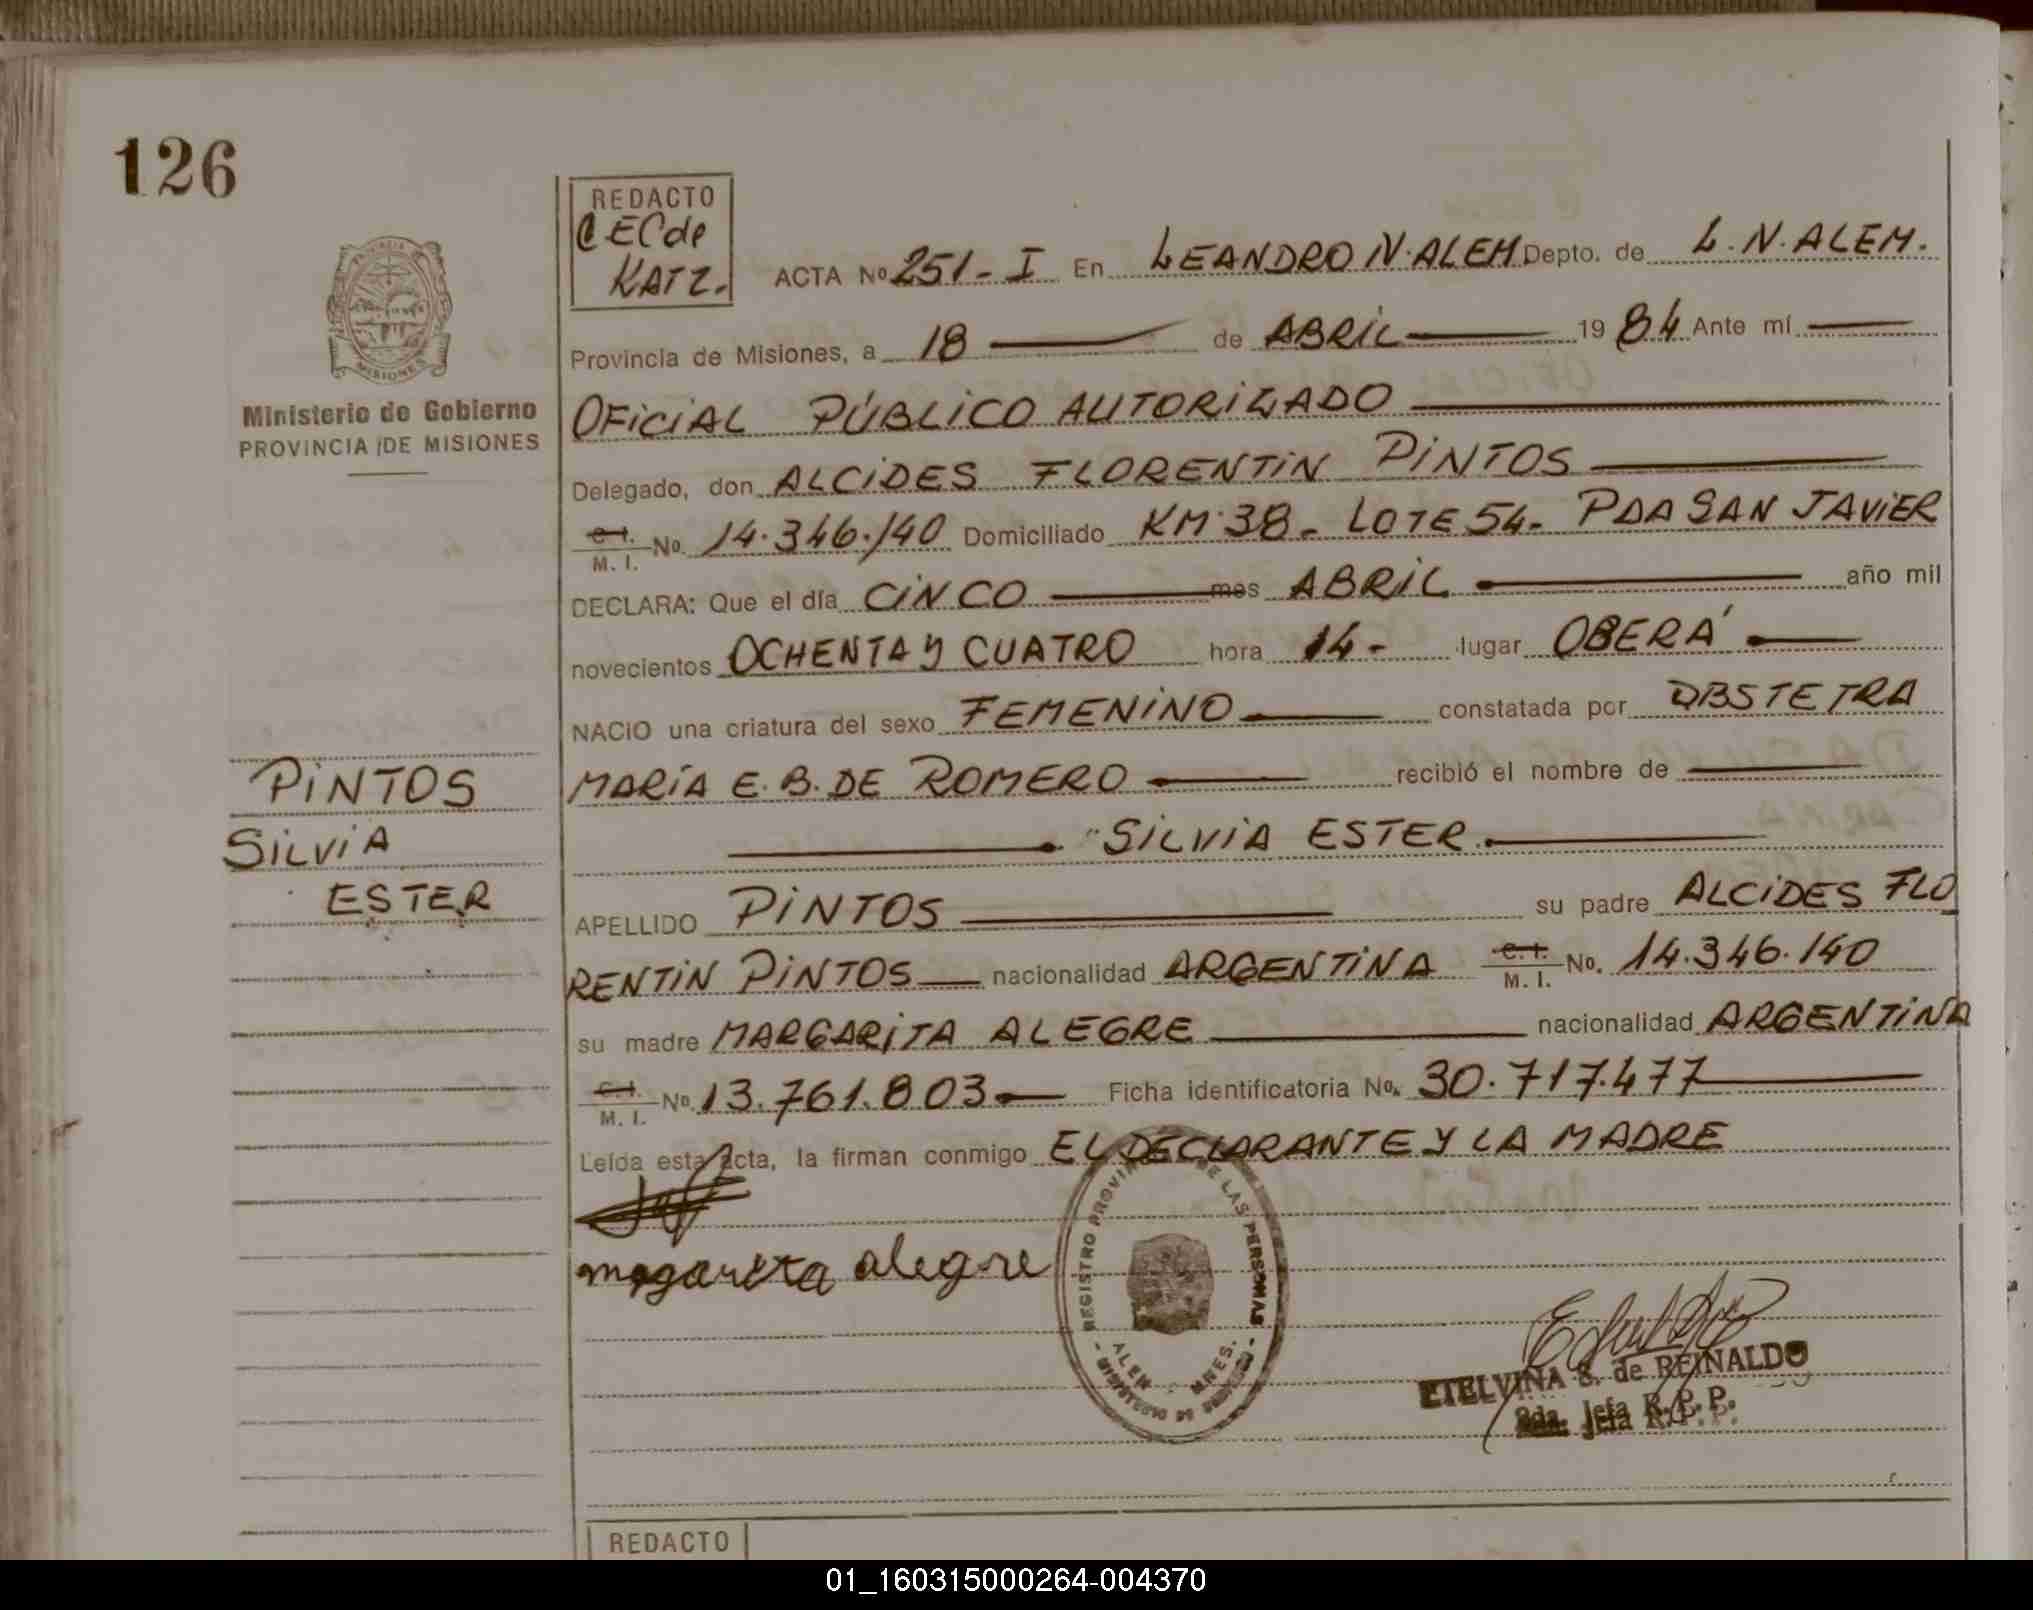 126
REDACTO
CECde
KATZ.
ACTA Nº 251-I En LEANDRO N. ALEM Depto. de L.N. ALEM.
Provincia de Misiones, a 18 de ABRIL 1984 Ante mí
OFICIAL PÚBLICO AUTORIZADO
Delegado, don ALCIDES FLORENTIN PINTOS
C.I. M.I. No. 14.346.140 Domiciliado KM.38- LOTE 54- PDA SAN JAVIER
DECLARA: Que el día CINCO mes ABRIL año mil
novecientos OCHENTA Y CUATRO hora 14- lugar OBERÁ
NACIO una criatura del sexo FEMENINO constatada por OBSTETRA
MARÍA E. B. DE ROMERO recibió el nombre de
"SILVIA ESTER.
APELLIDO PINTOS su padre ALCIDES FLO
RENTIN PINTOS nacionalidad ARGENTINA C.I. M.I. No. 14.346.140
su madre MARGARITA ALEGRE nacionalidad ARGENTINA
C.I. M.I. No. 13.761.803 Ficha identificatoria No. 30.717.477
Leída esta acta, la firman conmigo EL DECLARANTE Y LA MADRE
margarita alegre
MISIONES
Ministerio de Gobierno
PROVINCIA DE MISIONES
PINTOS
SILVIA
ESTER
REGISTRO PROVIN DE LAS PERSONAS
ALEM - MNES.
MINISTERIO DE GOBIERNO
ETELVINA S. de REINALDO
2da. Jefa R.P.P.
REDACTO
01_160315000264-004370